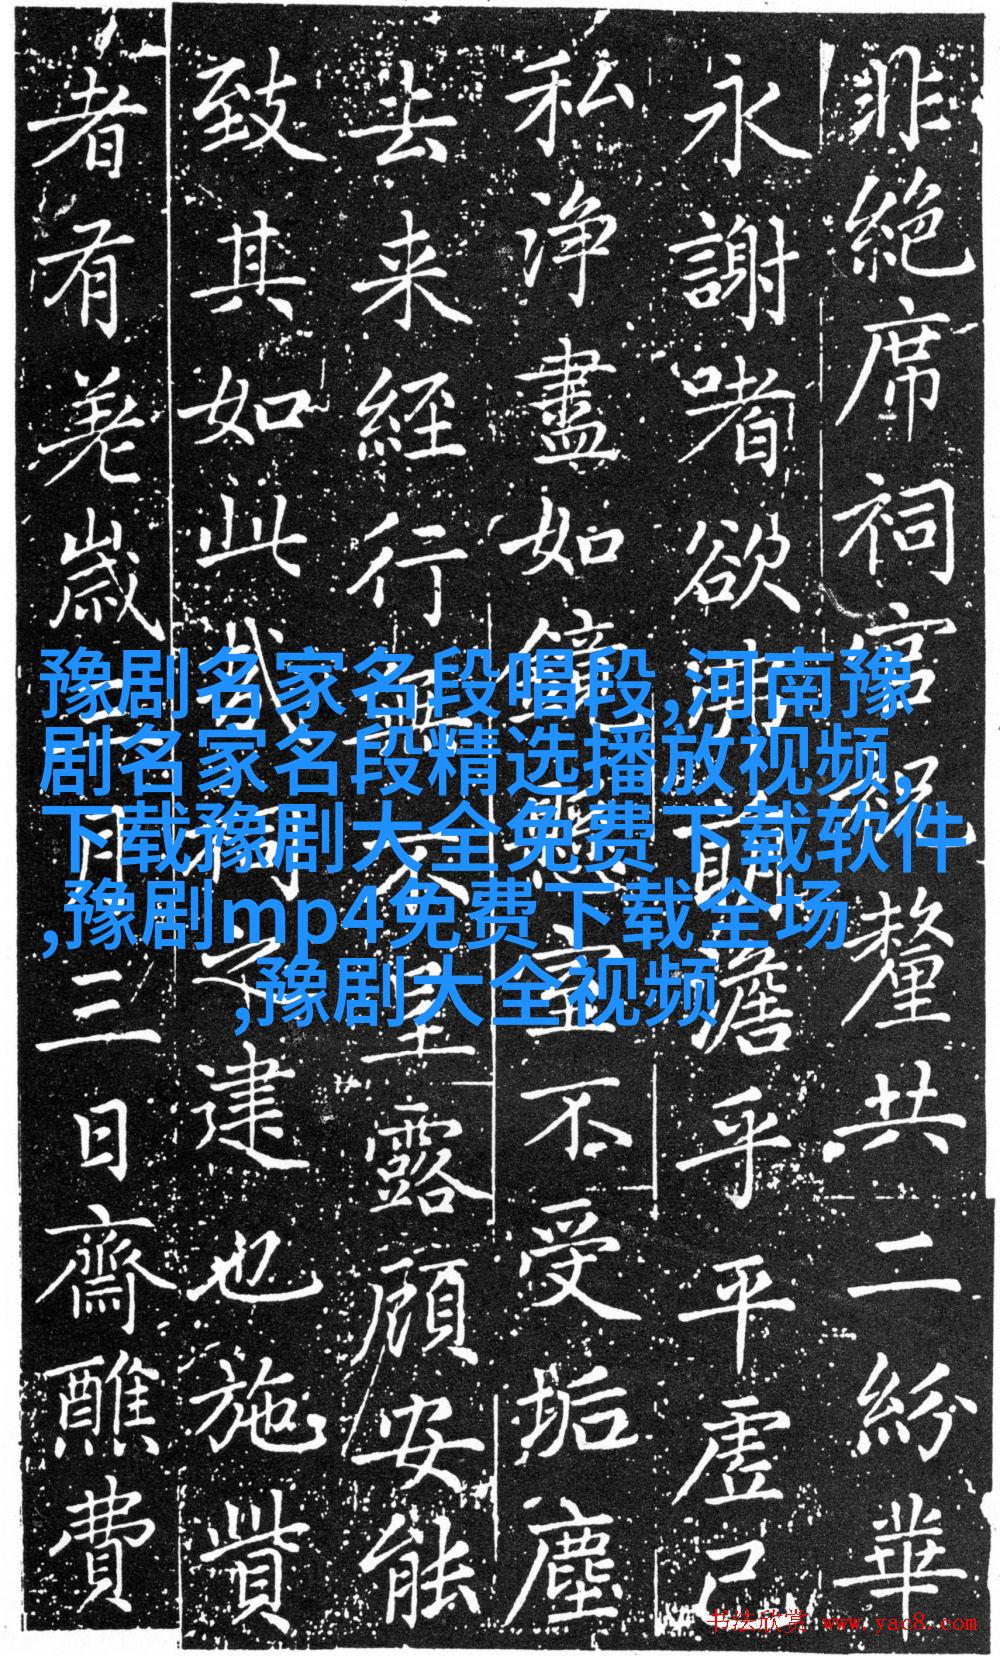 非絕席祠官祝釐共二紛華
永謝嗜欲澹乎平虛己
私淨盡如鏡懸不受垢塵
去来經行露顧安能
致其如此哉建也施貲
者有羌歲月三日齋醮費
豫剧名家名段唱段,河南豫
剧名家名段精选播放视频,
下载豫剧大全免费下载软件
,豫剧mp4免费下载全场
,豫剧大全视频
书法欣赏 www.yac8.com